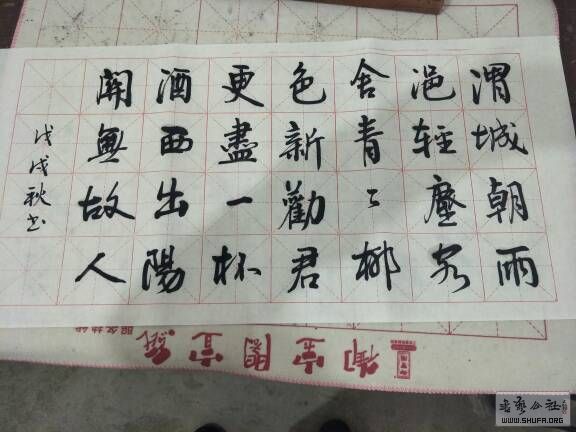 渭城朝雨
浥輕塵客
舍青〻柳
色新勸君
更盡一杯
酒西出陽
關無故人
戊戌秋书
书艺公社
WWW.SHUFA.ORG